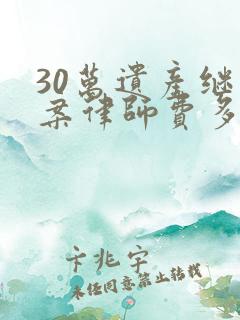 30萬遺產继
案律師費多
卡兆宇
未任同意禁止转载